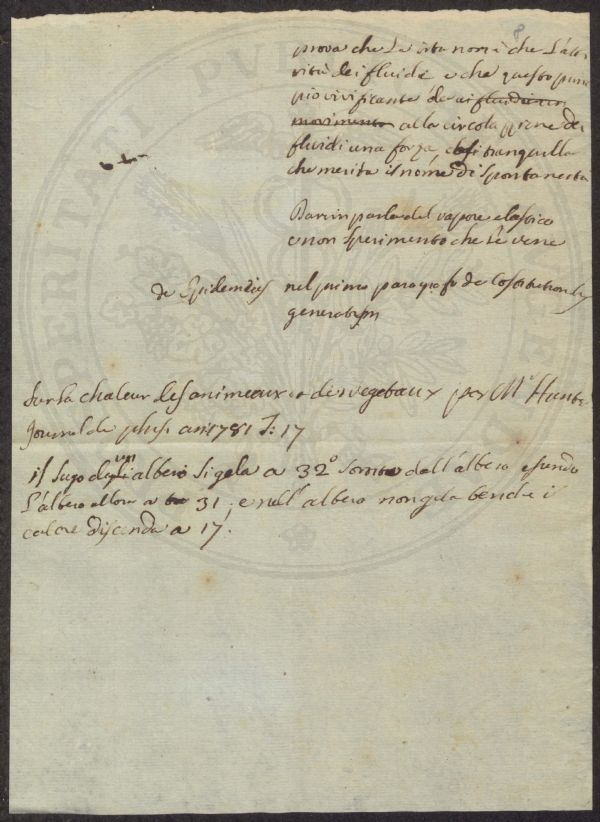 8
prova che la vita non è che l'atti
vità dei fluidi e che questo prin
cipio vivificante dà ai fluidi un
movimento alla circolazione dei
fluidi una forza, così tranquilla
che merita il nome di spontaneità
Darvin parla del vapore elastico
e non sperimento che le vene
de Epidemiis nel primo paragrafo de
generatim
Sur la chaleur des animeaux et des vegetaux par Mr Hunter
Journal de phis. an 1781 T: 17
il sugo degli alberi si gela a 32° sortito dall'albero essendo
l'albero allora a 31; e nell'albero non gela benchè il
calore discenda a 17.